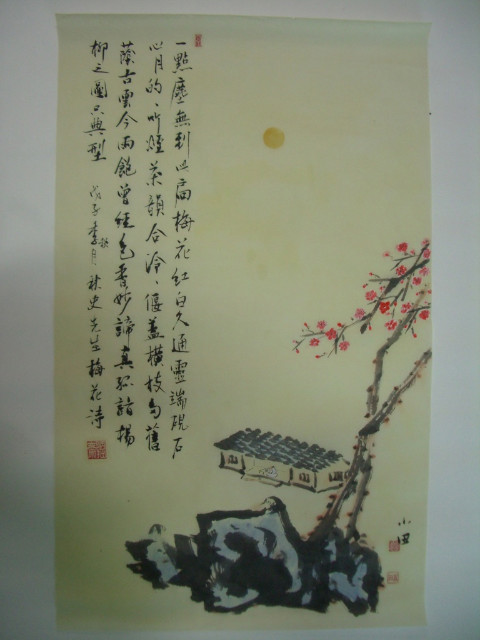 一點塵無到此扃梅花紅白久通靈端硯石
心月的的听煙茶韻合泠泠偃蓋橫枝句舊
蔭古雲今雨飽曾經色香妙諦真知詣揚
柳之圖只典型
戊子季秋月 秋史先生梅花詩
小田